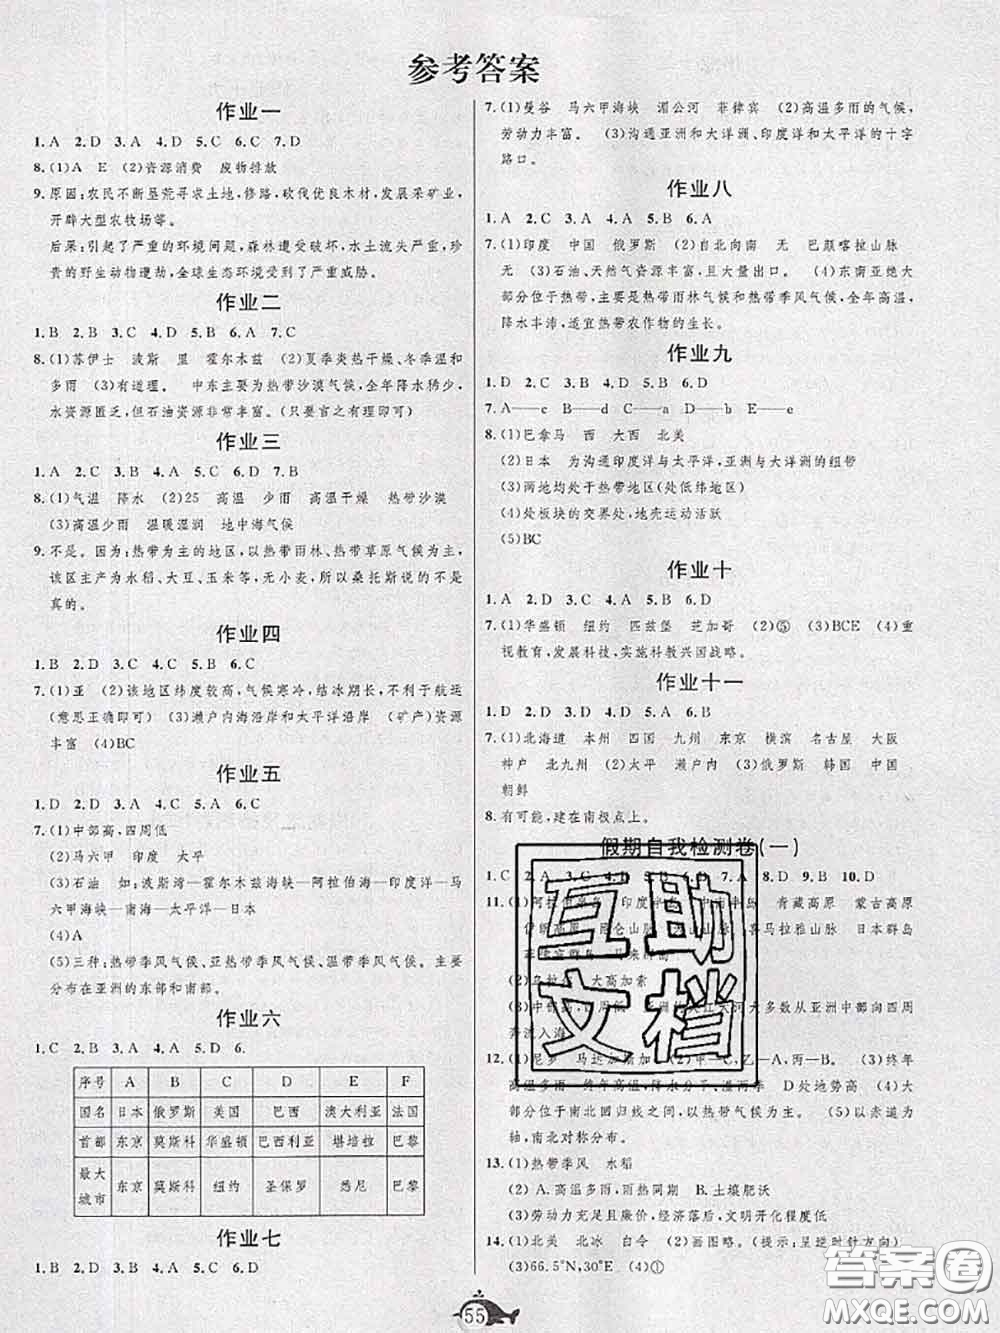 参考答案
作业一
1.A 2.D 3.A 4.D 5.C 6.C 7.D
8.(1)A E (2)资源消费 废物排放
9.原因:农民不断垦荒寻求土地,修路,砍伐优良木材,发展采矿业,
开辟大型农牧场等。
后果:引起了严重的环境问题,森林遭受破坏,水土流失严重,珍
贵的野生动物遭劫,全球生态环境受到了严重威胁。
作业二
1.B 2.B 3.C 4.D 5.B 6.A 7.C
8.(1)苏伊士 波斯 里 霍尔木兹 (2)夏季炎热干燥、冬季温和
多雨 (3)有道理。 中东主要为热带沙漠气候,全年降水稀少,
水资源匮乏,但石油资源非常丰富。(只要言之有理即可)
作业三
1.A 2.C 3.B 4.A 5.C 6.D 7.B
8.(1)气温 降水 (2)25 高温 少雨 高温干燥 热带沙漠
(3)高温少雨 温暖湿润 地中海气候
9.不是。因为,热带为主的地区,以热带雨林、热带草原气候为主,
该区主产为水稻、大豆、玉米等,无小麦,所以桑托斯说的不是
真的。
作业四
1.B 2.D 3.D 4.A 5.B 6.C
7.(1)亚 (2)该地区纬度较高,气候寒冷,结冰期长,不利于航运
(意思正确即可) (3)濑户内海沿岸和太平洋沿岸 (矿产)资源
丰富 (4)BC
作业五
1.D 2.D 3.A 4.C 5.A 6.C
7.(1)中部高,四周低
(2)马六甲 印度 太平
(3)石油 如:波斯湾—霍尔木兹海峡—阿拉伯海—印度洋—马
六甲海峡—南海—太平洋—日本
(4)A
(5)三种:热带季风气候、亚热带季风气候、温带季风气候。主要
分布在亚洲的东部和南部。
作业六
1.C 2.B 3.A 4.A 5.D 6.
序号 A B C D E F
国名 日本 俄罗斯 美国 巴西 澳大利亚 法国
首都 东京 莫斯科 华盛顿 巴西利亚 堪培拉 巴黎
最大城市 东京 莫斯科 纽约 圣保罗 悉尼 巴黎
作业七
1.B 2.D 3.A 4.C 5.B 6.D
7.(1)曼谷 马六甲海峡 湄公河 菲律宾 (2)高温多雨的气候,
劳动力丰富。 (3)沟通亚洲和大洋洲、印度洋和太平洋的十字
路口。
作业八
1.A 2.C 3.A 4.A 5.B 6.A
7.(1)印度 中国 俄罗斯 (2)自北向南 无 巴颜喀拉山脉
无 (3)石油、天然气资源丰富,且大量出口。 (4)东南亚绝大
部分位于热带,主要是热带雨林气候和热带季风气候,全年高温,
降水丰沛,适宜热带农作物的生长。
作业九
1.D 2.C 3.B 4.A 5.B 6.D
7.A——c B——d C——a D——b E——e
8.(1)巴拿马 西 大西 北美
(2)日本 为沟通印度洋与太平洋,亚洲与大洋洲的纽带
(3)两地均处于热带地区(处低纬地区)
(4)处板块的交界处,地壳运动活跃
(5)BC
作业十
1.A 2.D 3.C 4.A 5.B 6.D
7.(1)华盛顿 纽约 匹兹堡 芝加哥 (2)⑤ (3)BCE (4)重
视教育,发展科技,实施科教兴国战略。
作业十一
1.D 2.D 3.C 4.D 5.A 6.B
7.(1)北海道 本州 四国 九州 东京 横滨 名古屋 大阪
神户 北九州 (2)太平 濑户内 (3)俄罗斯 韩国 中国
朝鲜
8.有可能,建在南极点上。
假期自我检测卷(一)
1.C 2.D 3.D 8.D 9.B 10.D
11.(1)阿拉伯半岛 印度半岛 中南半岛 青藏高原 蒙古高原
伊朗高原 昆仑山脉 天山山脉 喜马拉雅山脉 日本群岛
(2)乌拉尔 大高加索
(3)中部高 大多数从亚洲中部向四周
奔流入海
12.(1)尼罗 马达加斯加 (2)甲—C,乙—A,丙—B。 (3)终年
D处地势高 (4)大
部分位于南北回归线之间,以热带气候为主。 (5)以赤道为
轴,南北对称分布。
13.(1)热带季风 水稻
(2)A.高温多雨,雨热同期 B.土壤肥沃
(3)劳动力充足且廉价,经济落后,文明开化程度低
14.(1)北美 北冰 白令 (2)画图略。(提示:呈逆时针方向)
(3)66.5°N,30°E (4)①
互助文档
答案圈
MXQE.COM
55